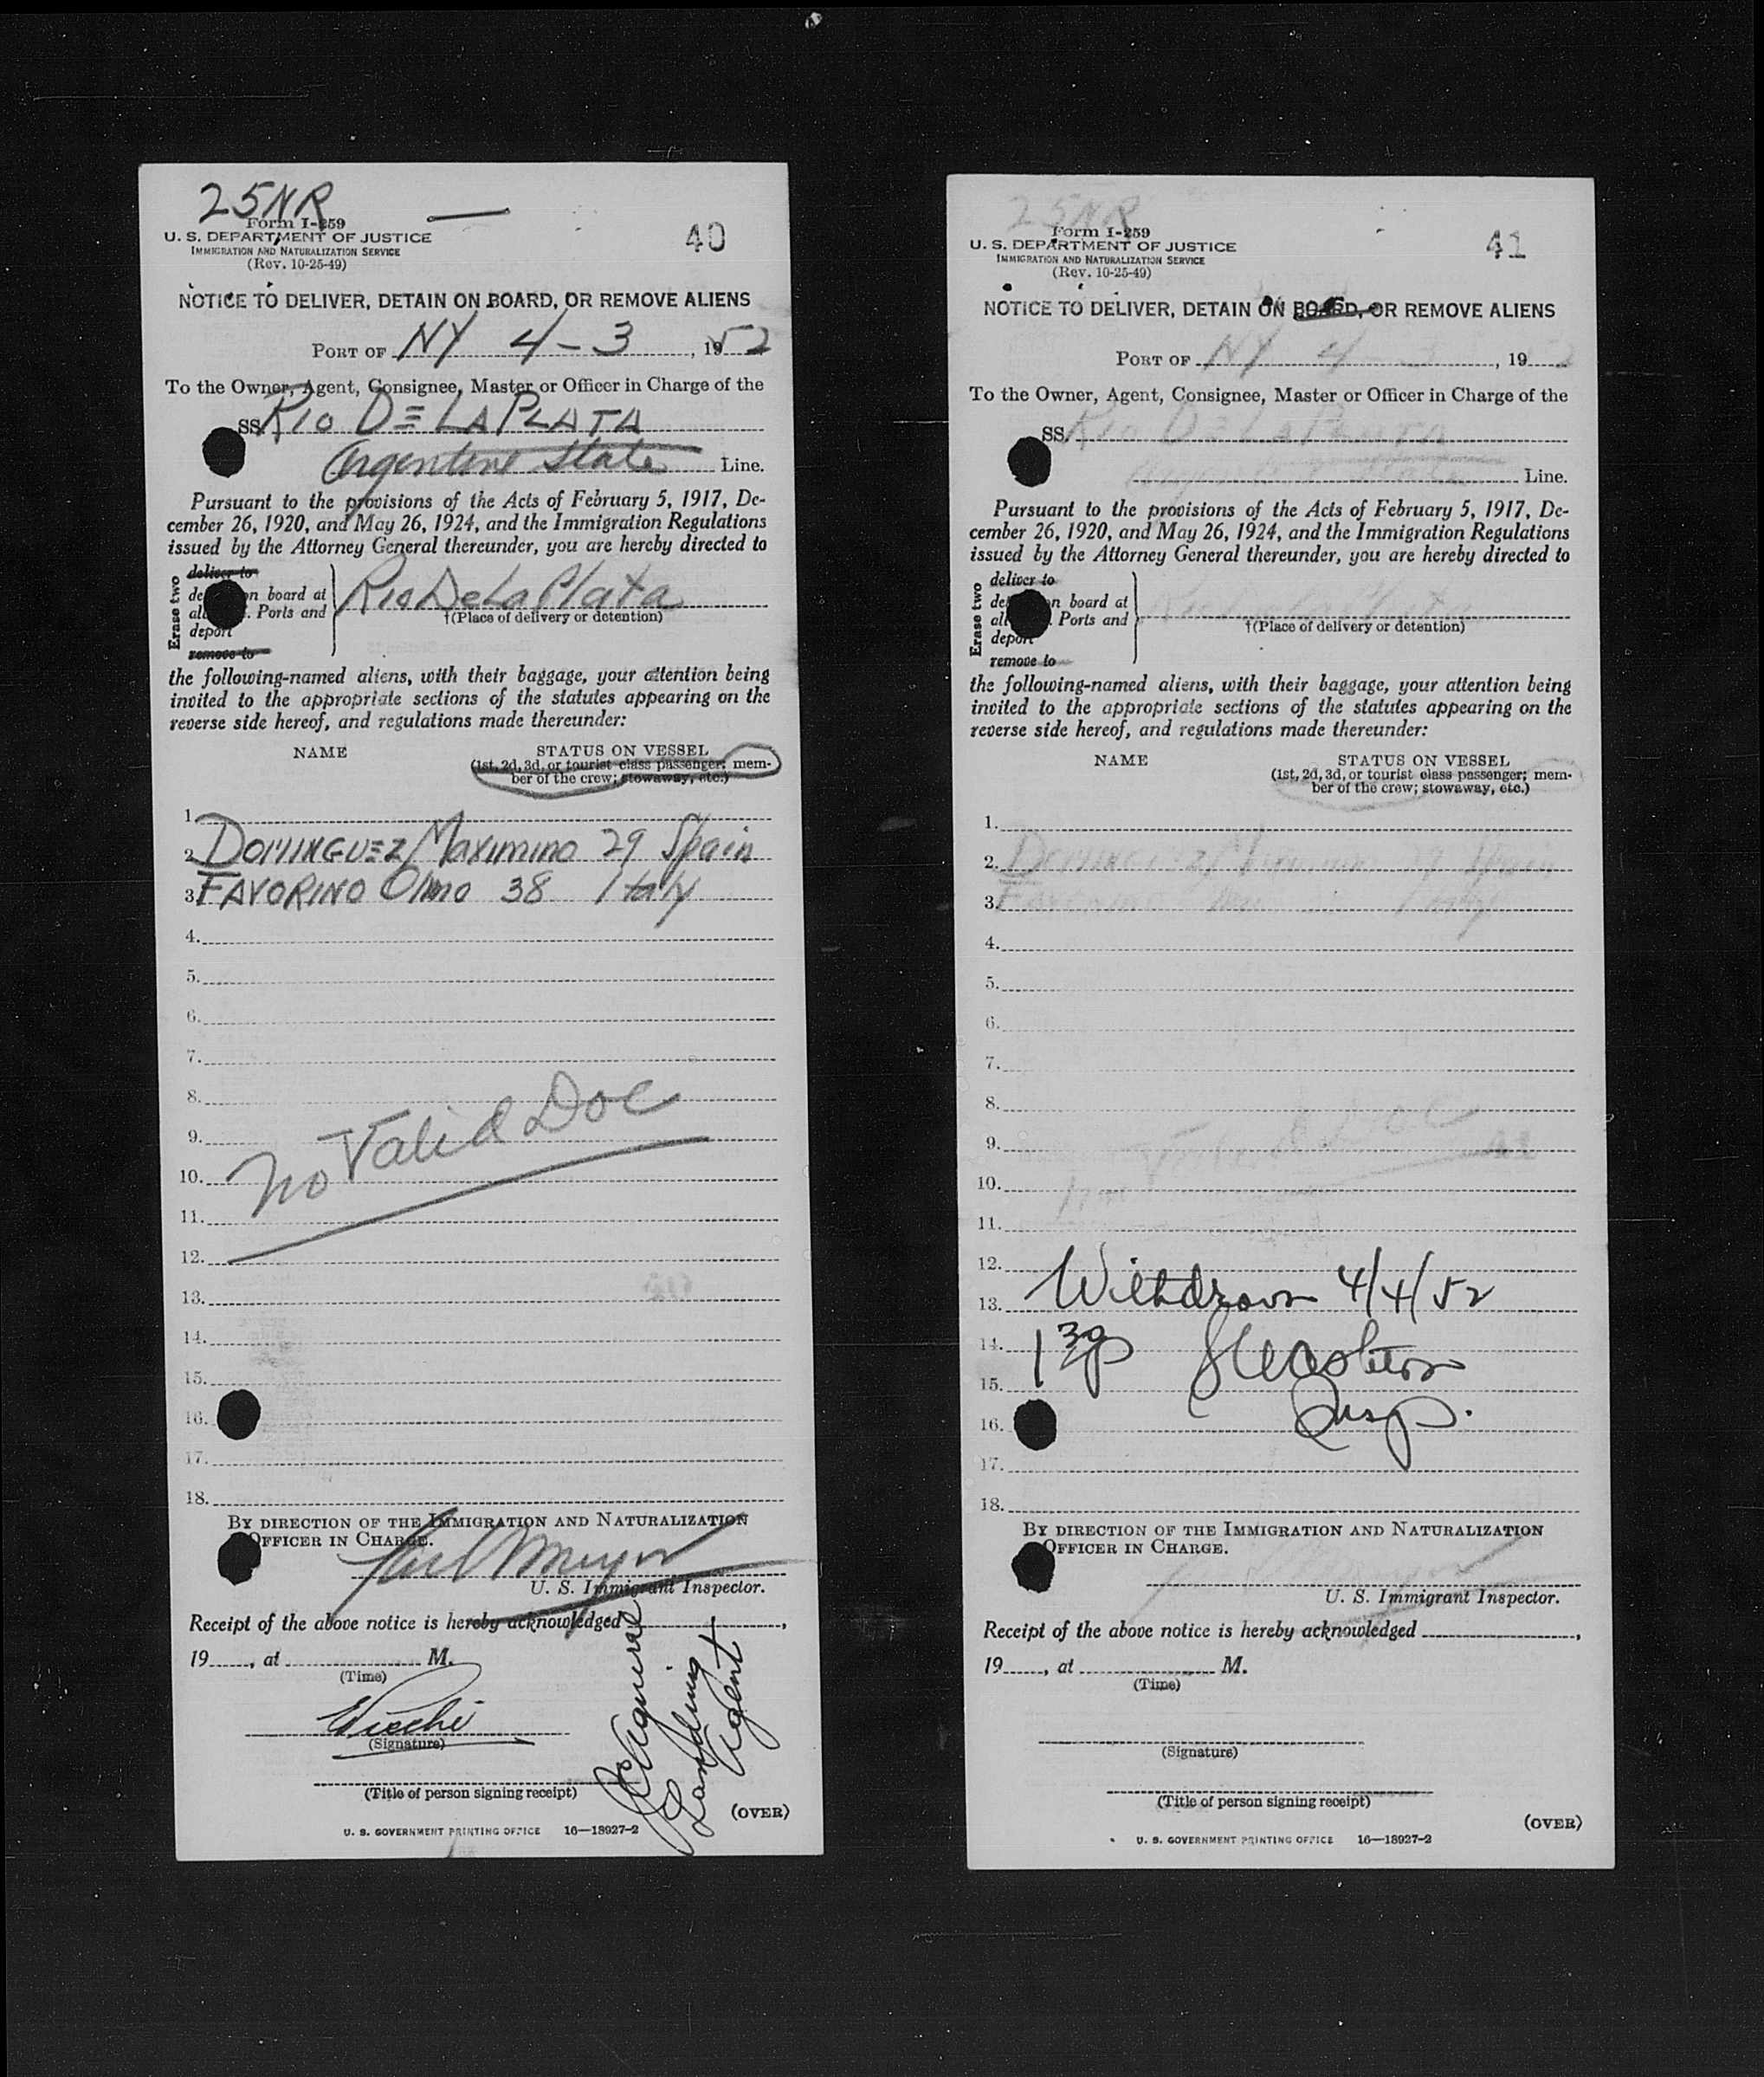 25NR
Form I-259
40
U. S. DEPARTMENT OF JUSTICE
IMMIGRATION AND NATURALIZATION SERVICE
(Rev. 10-25-49)
NOTICE TO DELIVER, DETAIN ON BOARD, OR REMOVE ALIENS
PORT OF NY 4-3, 1952
To the Owner, Agent, Consignee, Master or Officer in Charge of the
SS RIO DE LA PLATA
Argentine State Line.
Pursuant to the provisions of the Acts of February 5, 1917, De-
cember 26, 1920, and May 26, 1924, and the Immigration Regulations
issued by the Attorney General thereunder, you are hereby directed to
Erase two
deliver to
de n board at
all . Ports and
deport
remove to
Rio De La Plata
†(Place of delivery or detention)
the following-named aliens, with their baggage, your attention being
invited to the appropriate sections of the statutes appearing on the
reverse side hereof, and regulations made thereunder:
NAME
STATUS ON VESSEL
(1st, 2d, 3d, or tourist class passenger; mem-
ber of the crew; stowaway, etc.)
1.
2. DOMINGUEZ, Maximino 29 Spain
3. FAVORINO Olmo 38 Italy
4.
5.
6.
7.
8.
9.
10.
11.
12.
no Valid Doc
13.
14.
15.
16.
17.
18.
BY DIRECTION OF THE IMMIGRATION AND NATURALIZATION
OFFICER IN CHARGE.
U. S. Immigrant Inspector.
Receipt of the above notice is hereby acknowledged ,
19 , at M.
(Time)
(Signature)
Aguirre
Landing
Agent
(Title of person signing receipt)
(OVER)
U. S. GOVERNMENT PRINTING OFFICE 16—18927-2
25NR
Form I-259
41
U. S. DEPARTMENT OF JUSTICE
IMMIGRATION AND NATURALIZATION SERVICE
(Rev. 10-25-49)
NOTICE TO DELIVER, DETAIN ON BOARD, OR REMOVE ALIENS
PORT OF NY 4 , 19
To the Owner, Agent, Consignee, Master or Officer in Charge of the
SS. Rio De La Plata
Line.
Pursuant to the provisions of the Acts of February 5, 1917, De-
cember 26, 1920, and May 26, 1924, and the Immigration Regulations
issued by the Attorney General thereunder, you are hereby directed to
Erase two
deliver to
de n board at
all . Ports and
deport
remove to
†(Place of delivery or detention)
the following-named aliens, with their baggage, your attention being
invited to the appropriate sections of the statutes appearing on the
reverse side hereof, and regulations made thereunder:
NAME
STATUS ON VESSEL
(1st, 2d, 3d, or tourist class passenger; mem-
ber of the crew; stowaway, etc.)
1.
2.
3.
4.
5.
6.
7.
8.
9.
10.
11.
12.
13. Withdrawn 4/4/52
14. 1 30 p
15.
16. Insp.
17.
18.
BY DIRECTION OF THE IMMIGRATION AND NATURALIZATION
OFFICER IN CHARGE.
U. S. Immigrant Inspector.
Receipt of the above notice is hereby acknowledged ,
19 , at M.
(Time)
(Signature)
(Title of person signing receipt)
(OVER)
U. S. GOVERNMENT PRINTING OFFICE 16—18927-2